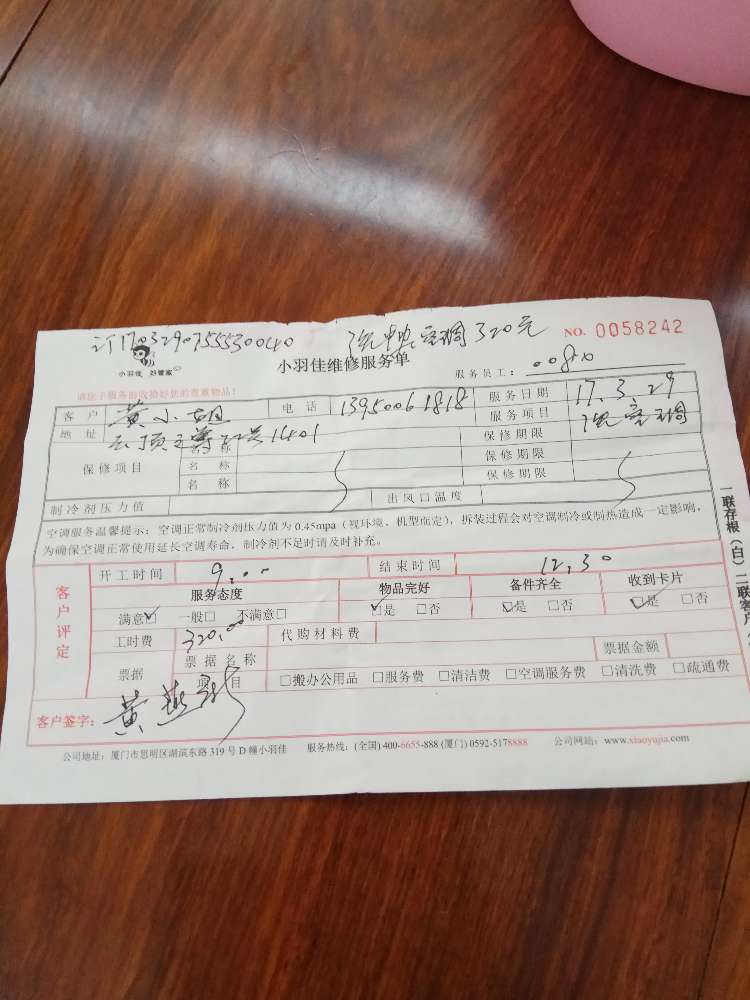 订17032907555300040 洗中央空调320元 NO. 0058242
小羽佳 好管家 小羽佳维修服务单 服务员工：00810
请您于服务前收拾好您的贵重物品！
客户 黄小姐 电话 13950061818 服务日期 17.3.29
地址 云顶至尊22号1401 服务项目 洗空调
保修项目 名称 保修期限
名称 保修期限
名称 保修期限
制冷剂压力值 出风口温度
空调服务温馨提示：空调正常制冷剂压力值为0.45mpa（视环境、机型而定），拆装过程会对空调制冷或制热造成一定影响，
为确保空调正常使用延长空调寿命，制冷剂不足时请及时补充。
客户评定
开工时间 9:00 结束时间 12:30
服务态度 物品完好 备件齐全 收到卡片
满意☑ 一般□ 不满意□ ☑是 □否 ☑是 □否 ☑是 □否
工时费 320.00 代购材料费
票据 票据名称 票据金额
项目 □搬办公用品 □服务费 □清洁费 □空调服务费 □清洗费 □疏通费
客户签字：黄燕
公司地址：厦门市思明区湖滨东路319号D幢小羽佳 服务热线：(全国) 400-6655-888 (厦门) 0592-5178888 公司网站：www.xiaoyujia.com
一联存根（白）二联客户